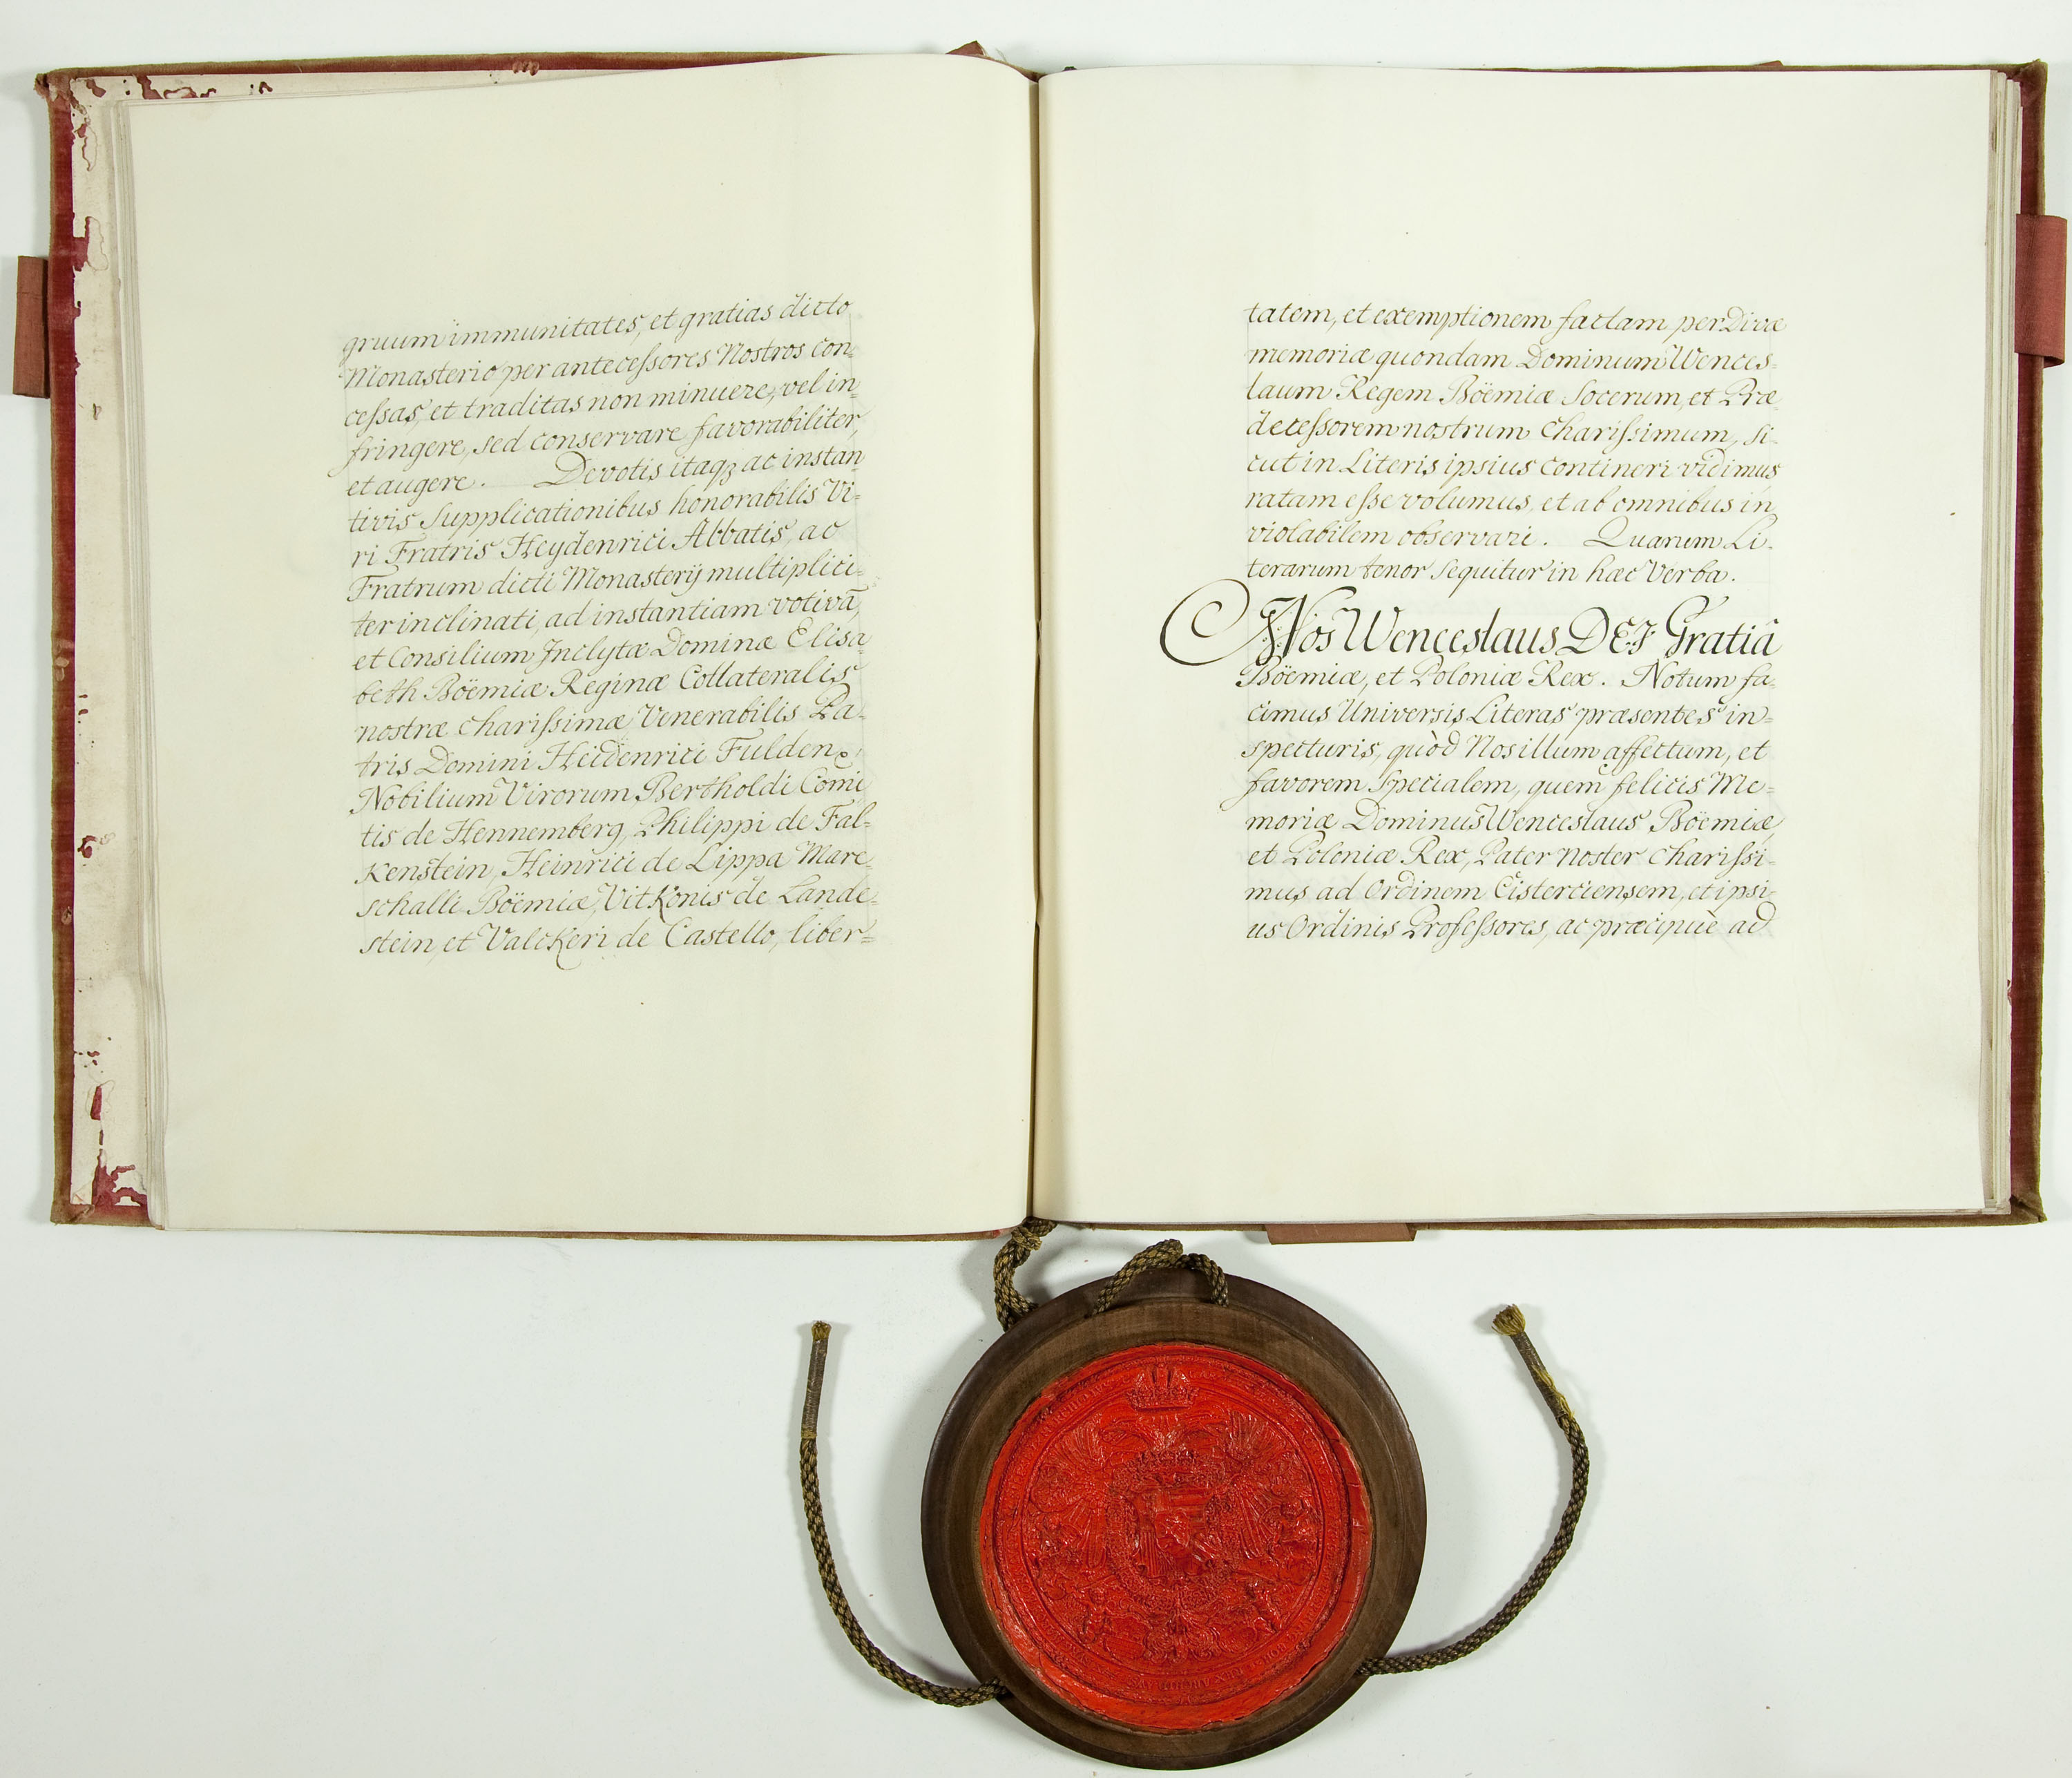 gruum immunitates, et gratias dicto
Monasterio per antecessores Nostros con-
cessas, et traditas non minuere, vel in-
fringere, sed conservare favorabiliter,
et augere. Devotis itaqꝫ ac instan
tivis Supplicationibus honorabilis Vi-
ri Fratris Heydenrici Abbatis, ac
Fratrum dicti Monasterÿ multiplici-
ter inclinati, ad instantiam votivā,
et Consilium Inclytæ Dominæ Elisa
beth Böemiæ Reginæ Collateralis
nostræ charissimæ Venerabilis Pa-
tris Domini Heidenrici Fulden.,
Nobilium Virorum Bertholdi Comi
tis de Hennemberg, Philippi de Fal-
Kenstein, Heinrici de Lippa Mare-
schalli Böemiæ, VitKonis de Lande-
stein, et ValcKeri de Castello, liber-
tatem, et exemptionem factam per Divæ
memoriæ quondam Dominum Wences-
laum Regem Böemiæ Socerum, et Præ-
decessorem nostrum charissimum, si-
cut in Literis ipsius contineri vidimus
ratam esse volumus, et ab omnibus in
violabilem observari. Quarum Li-
terarum tenor sequitur in hæc Verba.
Nos Wenceslaus DEI Gratiâ
Böemiæ, et Poloniæ Rex. Notum fa-
cimus Universis Literas præsentes in-
specturis, quòd Nos illum affectum, et
favorem specialem, quem felicis Me-
moriæ Dominus Wenceslaus Böemiæ,
et Poloniæ Rex, Pater noster charissi-
mus ad Ordinem Cisterciensem, et ipsi-
us Ordinis Professores, ac præcipuè ad